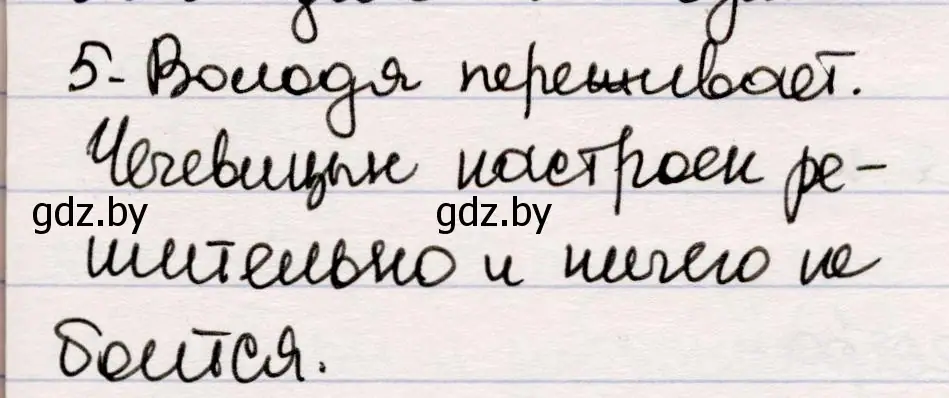 5- Володя переживает.
Чечевицын настроен ре-
gdz.by gdz.by
шительно и ничего не
боится.